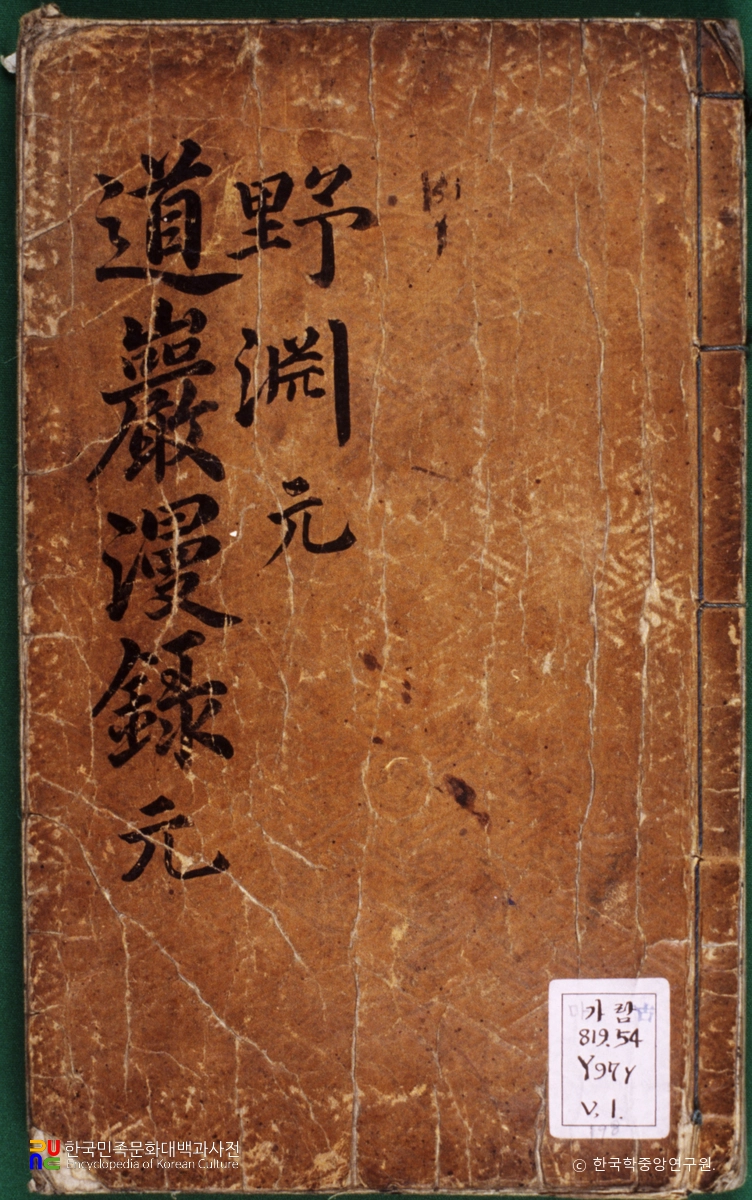 野淵 元
道巖漫錄 元
가람
819.54
Y97y
V.1.
한국민족문화대백과사전
Encyclopedia of Korean Culture
© 한국학중앙연구원.